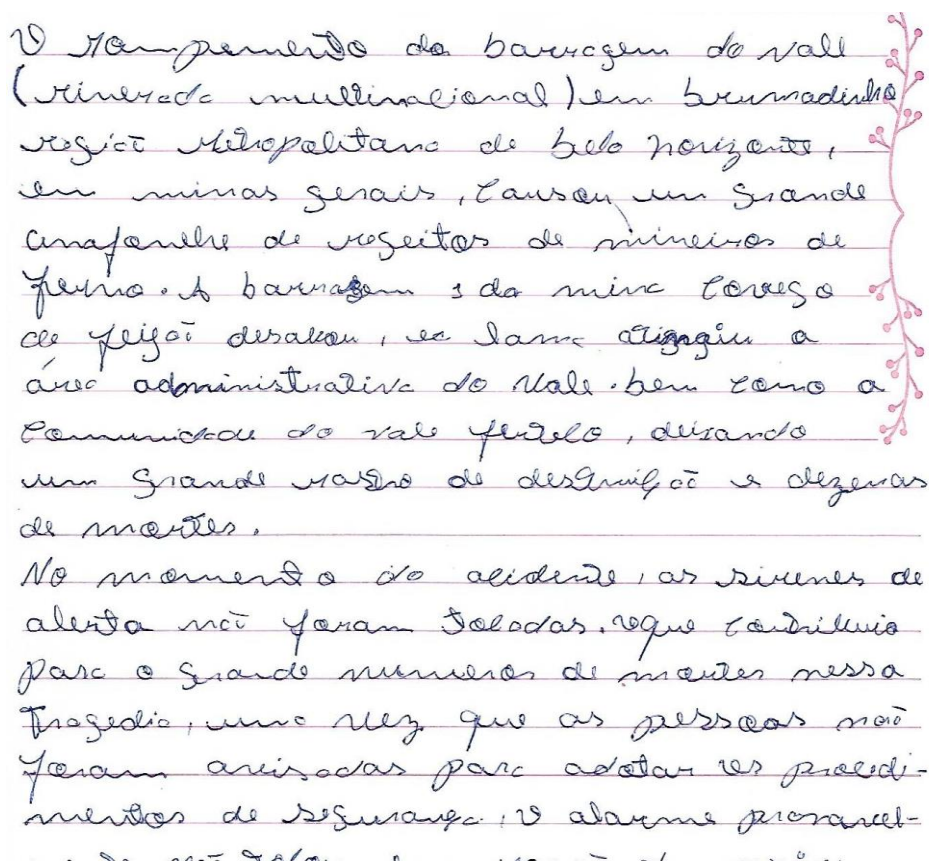 O rompemento da barragem do vall
(minerada multinacional) em brumadinho
regiaõ Metropolitana de belo horizonte,
em minas gerais, Causou um grande
de regeitos de mineiros de
ferro. A barragem 1 da mina Corrego
de feijaõ desabou, ea lama atingiu a
área administrativa do Vale. bem como a
Comunidade do vale ferteло, deixando
um grande rastro de destruiçaõ e dezenas
de mortes.
No momento do acidente, as sirenes de
alerta naõ foram tocadas. oque contribuio
para o grande numeros de mortes nessa
Tragedia, uma vez que as pessoas naõ
foram avisadas para adotar os procedi-
mentos de segurança, O alarme provavel-